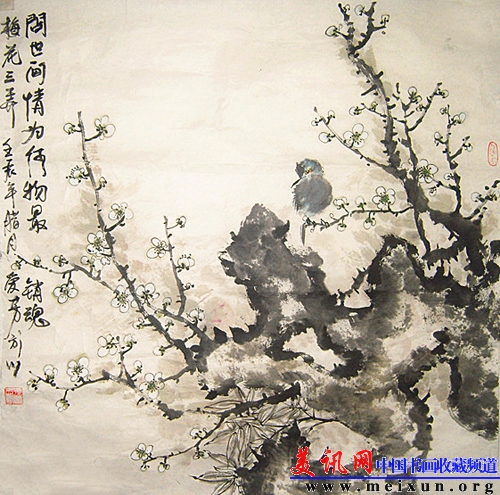 問世间情为何物最
销魂
梅花三弄
年腊月
美讯网 中国书画收藏频道
www.meixun.org